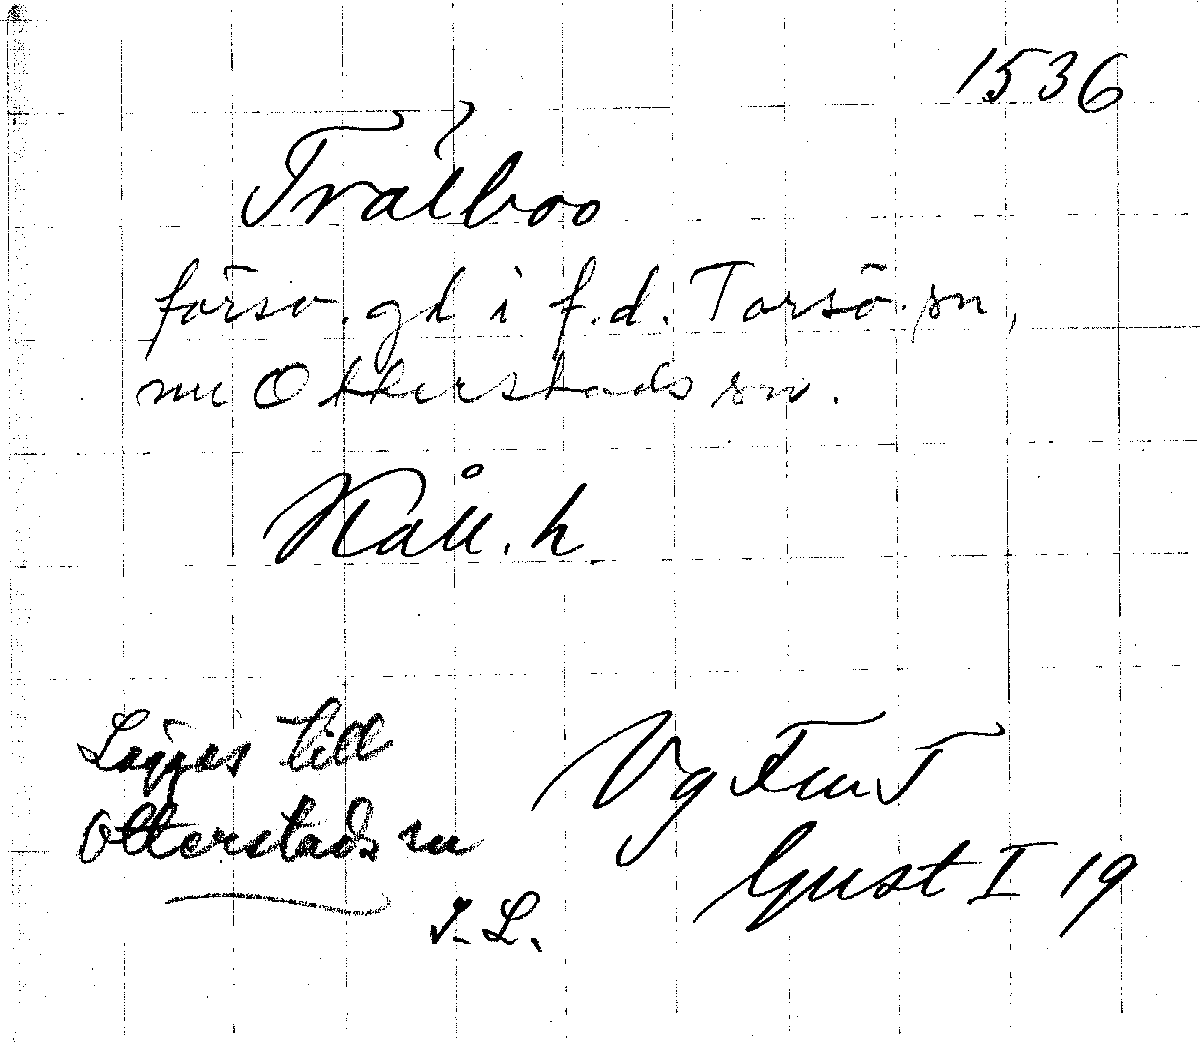 1536
Trälboo
försv. gd i f.d. Torsö sn,
nu Otterstads sn.
Kåll. h.
Lägges till
Otterstads sn
I. L.
Vg FmT
Gust I 19